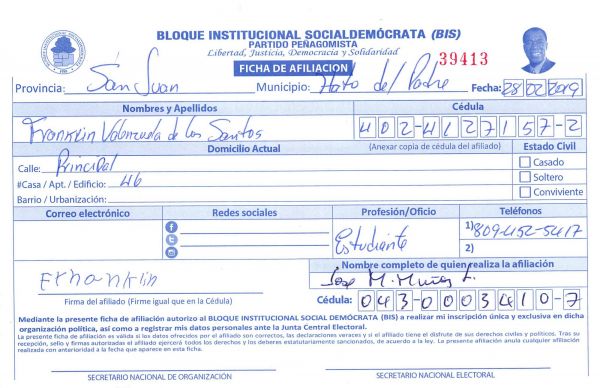 BLOQUE INSTITUCIONAL SOCIALDEMÓCRATA (BIS)
PARTIDO PEÑAGOMISTA
Libertad, Justicia, Democracia y Solidaridad
39413
FICHA DE AFILIACION
Provincia: San Juan Municipio: Hato del Padre Fecha: 28/02/2019
Nombres y Apellidos Cédula
Franklin Valenzuela de los Santos 402-4127157-2
Domicilio Actual (Anexar copia de cédula del afiliado) Estado Civil
Calle: Principal Casado
#Casa / Apt. / Edificio: 46 Soltero
Barrio / Urbanización: Conviviente
Correo electrónico Redes sociales Profesión/Oficio Teléfonos
Estudiante 1) 809-452-5417
2)
Nombre completo de quien realiza la afiliación
Jose M. Muñoz L.
Firma del afiliado (Firme igual que en la Cédula) Cédula: 043-0003410-7
Mediante la presente ficha de afiliación autorizo al BLOQUE INSTITUCIONAL SOCIAL DEMÓCRATA (BIS) a realizar mi inscripción única y exclusiva en dicha
organización política, así como a registrar mis datos personales ante la Junta Central Electoral.
La presente ficha de afiliación es válida si los datos ofrecidos por el afiliado son correctos, las declaraciones veraces y si el afiliado tiene el disfrute de sus derechos civiles y políticos. Tras su
recepción, sello y firmas autorizadas el afiliado ejercerá todos los derechos y los deberes estatutariamente sancionados, de acuerdo a la ley. La presente afiliación anula cualquier afiliación
realizada con anterioridad a la fecha que aparece en esta ficha.
SECRETARIO NACIONAL DE ORGANIZACIÓN SECRETARIO NACIONAL ELECTORAL